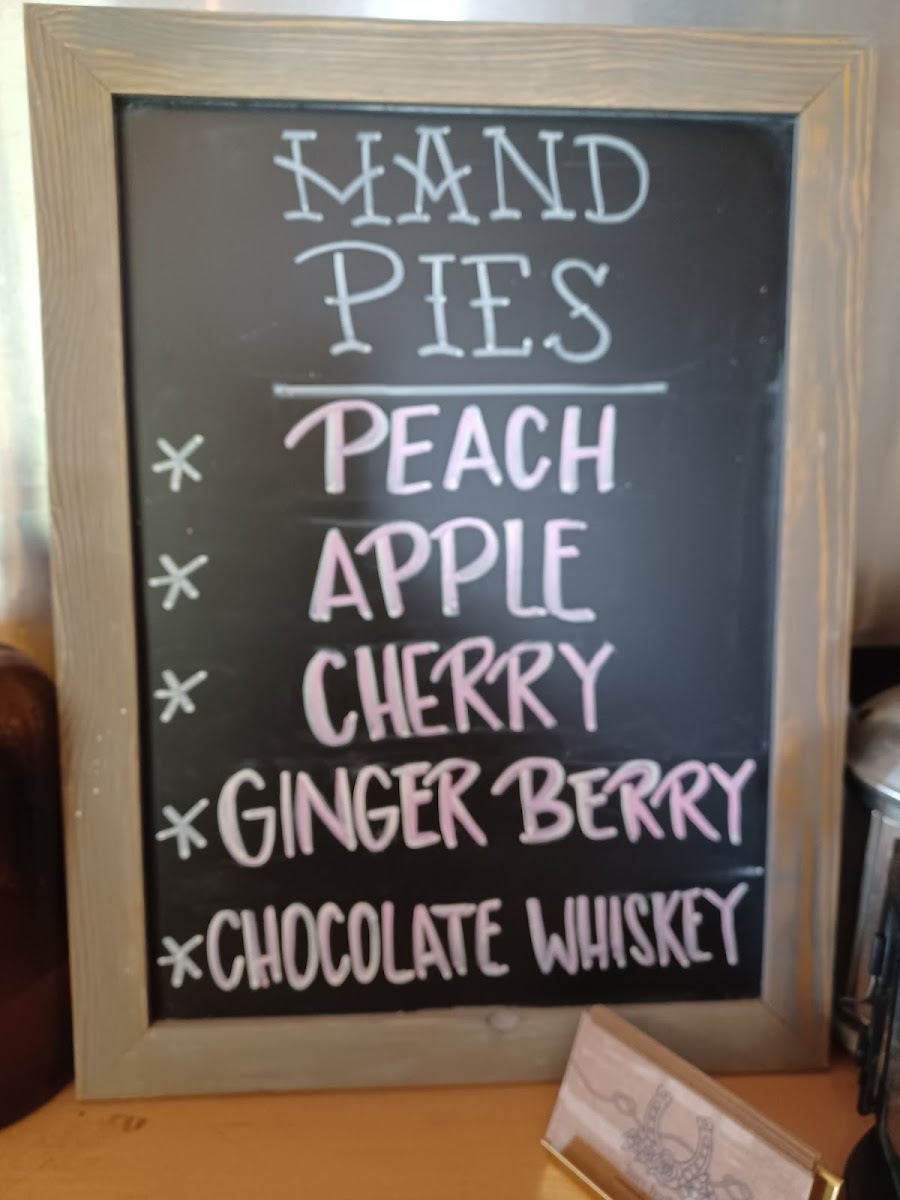 HAND
PIES
* PEACH
* APPLE
* CHERRY
* GINGER BERRY
* CHOCOLATE WHISKEY